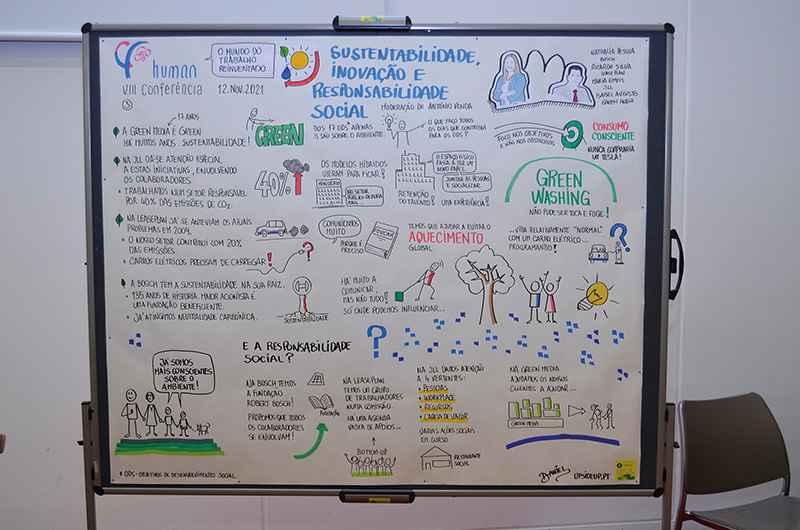 human
VIII Conferência
O MUNDO DO
TRABALHO
REINVENTADO
12. Nov. 2021
SUSTENTABILIDADE,
INOVAÇÃO E
RESPONSABILIDADE
SOCIAL
MODERAÇÃO DE ANTÓNIO
NATHALIA PESSOA
BOSCH
RICARDO SILVA
LEASEPLAN
MARIA EMPIS
JLL
ISABEL AUGUSTO
GREEN MEDIA
17 ANOS
A GREEN MEDIA É GREEN
HÁ MUITOS ANOS. SUSTENTABILIDADE!
GREEN
DOS 17 ODS* APENAS
5 SÃO SOBRE O AMBIENTE.
O QUE FAÇO TODOS
OS DIAS QUE CONTRIBUI
PARA OS ODS?
FOCO NOS OBJETIVOS
E NÃO NOS OBSTÁCULOS
CONSUMO
CONSCIENTE
NUNCA COMPRARIA
UM TESLA!
NA JLL DÁ-SE ATENÇÃO ESPECIAL
A ESTAS INICIATIVAS, ENVOLVENDO
OS COLABORADORES.
TRABALHAMOS NUM SETOR RESPONSÁVEL
POR 40% DAS EMISSÕES DE CO2.
40%
OS MODELOS HÍBRIDOS
VIERAM PARA FICAR!
NO SETOR
O ESPAÇO FÍSICO
PASSA A TER UM
NOVO PAPEL.
JUNTAR AS PESSOAS
E SOCIALIZAR
RETENÇÃO
DO TALENTO!
UMA EXPERIÊNCIA!
GREEN
WASHING
NÃO PODE SER TOCA E FOGE!
NA LEASEPLAN JÁ SE ANTEVIAM OS ATUAIS
PROBLEMAS EM 2009.
O NOSSO SETOR CONTRIBUI COM 20%
DAS EMISSÕES.
CARROS ELÉTRICOS PRECISAM DE CARREGAR!
COMUNICAMOS
MUITO
PORQUE É
PRECISO
EDUCAR
TEMOS QUE AJUDAR A EVITAR O
AQUECIMENTO
GLOBAL
...VIDA RELATIVAMENTE "NORMAL"
COM UM CARRO ELÉTRICO...
PROGRAMANDO!
A BOSCH TEM A SUSTENTABILIDADE NA SUA RAIZ.
135 ANOS DE HISTÓRIA. MAIOR ACIONISTA É
UMA FUNDAÇÃO BENEFICENTE.
JÁ ATINGIMOS NEUTRALIDADE CARBÓNICA.
SUSTENTABILIDADE
HÁ MUITO A
COMUNICAR,
MAS NÃO TUDO!
SÓ ONDE PODEMOS INFLUENCIAR...
E A RESPONSABILIDADE
SOCIAL?
JÁ SOMOS
MAIS CONSCIENTES
SOBRE O
AMBIENTE!
NA BOSCH TEMOS
A FUNDAÇÃO
ROBERT BOSCH!
PROPOMOS QUE TODOS
OS COLABORADORES
SE ENVOLVAM!
NA LEASEPLAN
TEMOS UM GRUPO
DE TRABALHADORES
NUMA COMISSÃO.
HÁ UMA AGENDA
VASTA DE APOIOS...
BOTTOM UP
NA JLL DAMOS ATENÇÃO
A 4 VERTENTES:
PESSOAS
WORKPLACE
RECURSOS
CADEIA DE VALOR
VÁRIAS AÇÕES SOCIAIS
EM CURSO
RESTAURANTE
SOCIAL
NA GREEN MEDIA
AJUDAMOS OS NOSSOS
CLIENTES A AJUDAR...
GREEN MEDIA
* ODS - OBJETIVOS DE DESENVOLVIMENTO SOCIAL
DANIEL
UPSIDEUP.PT